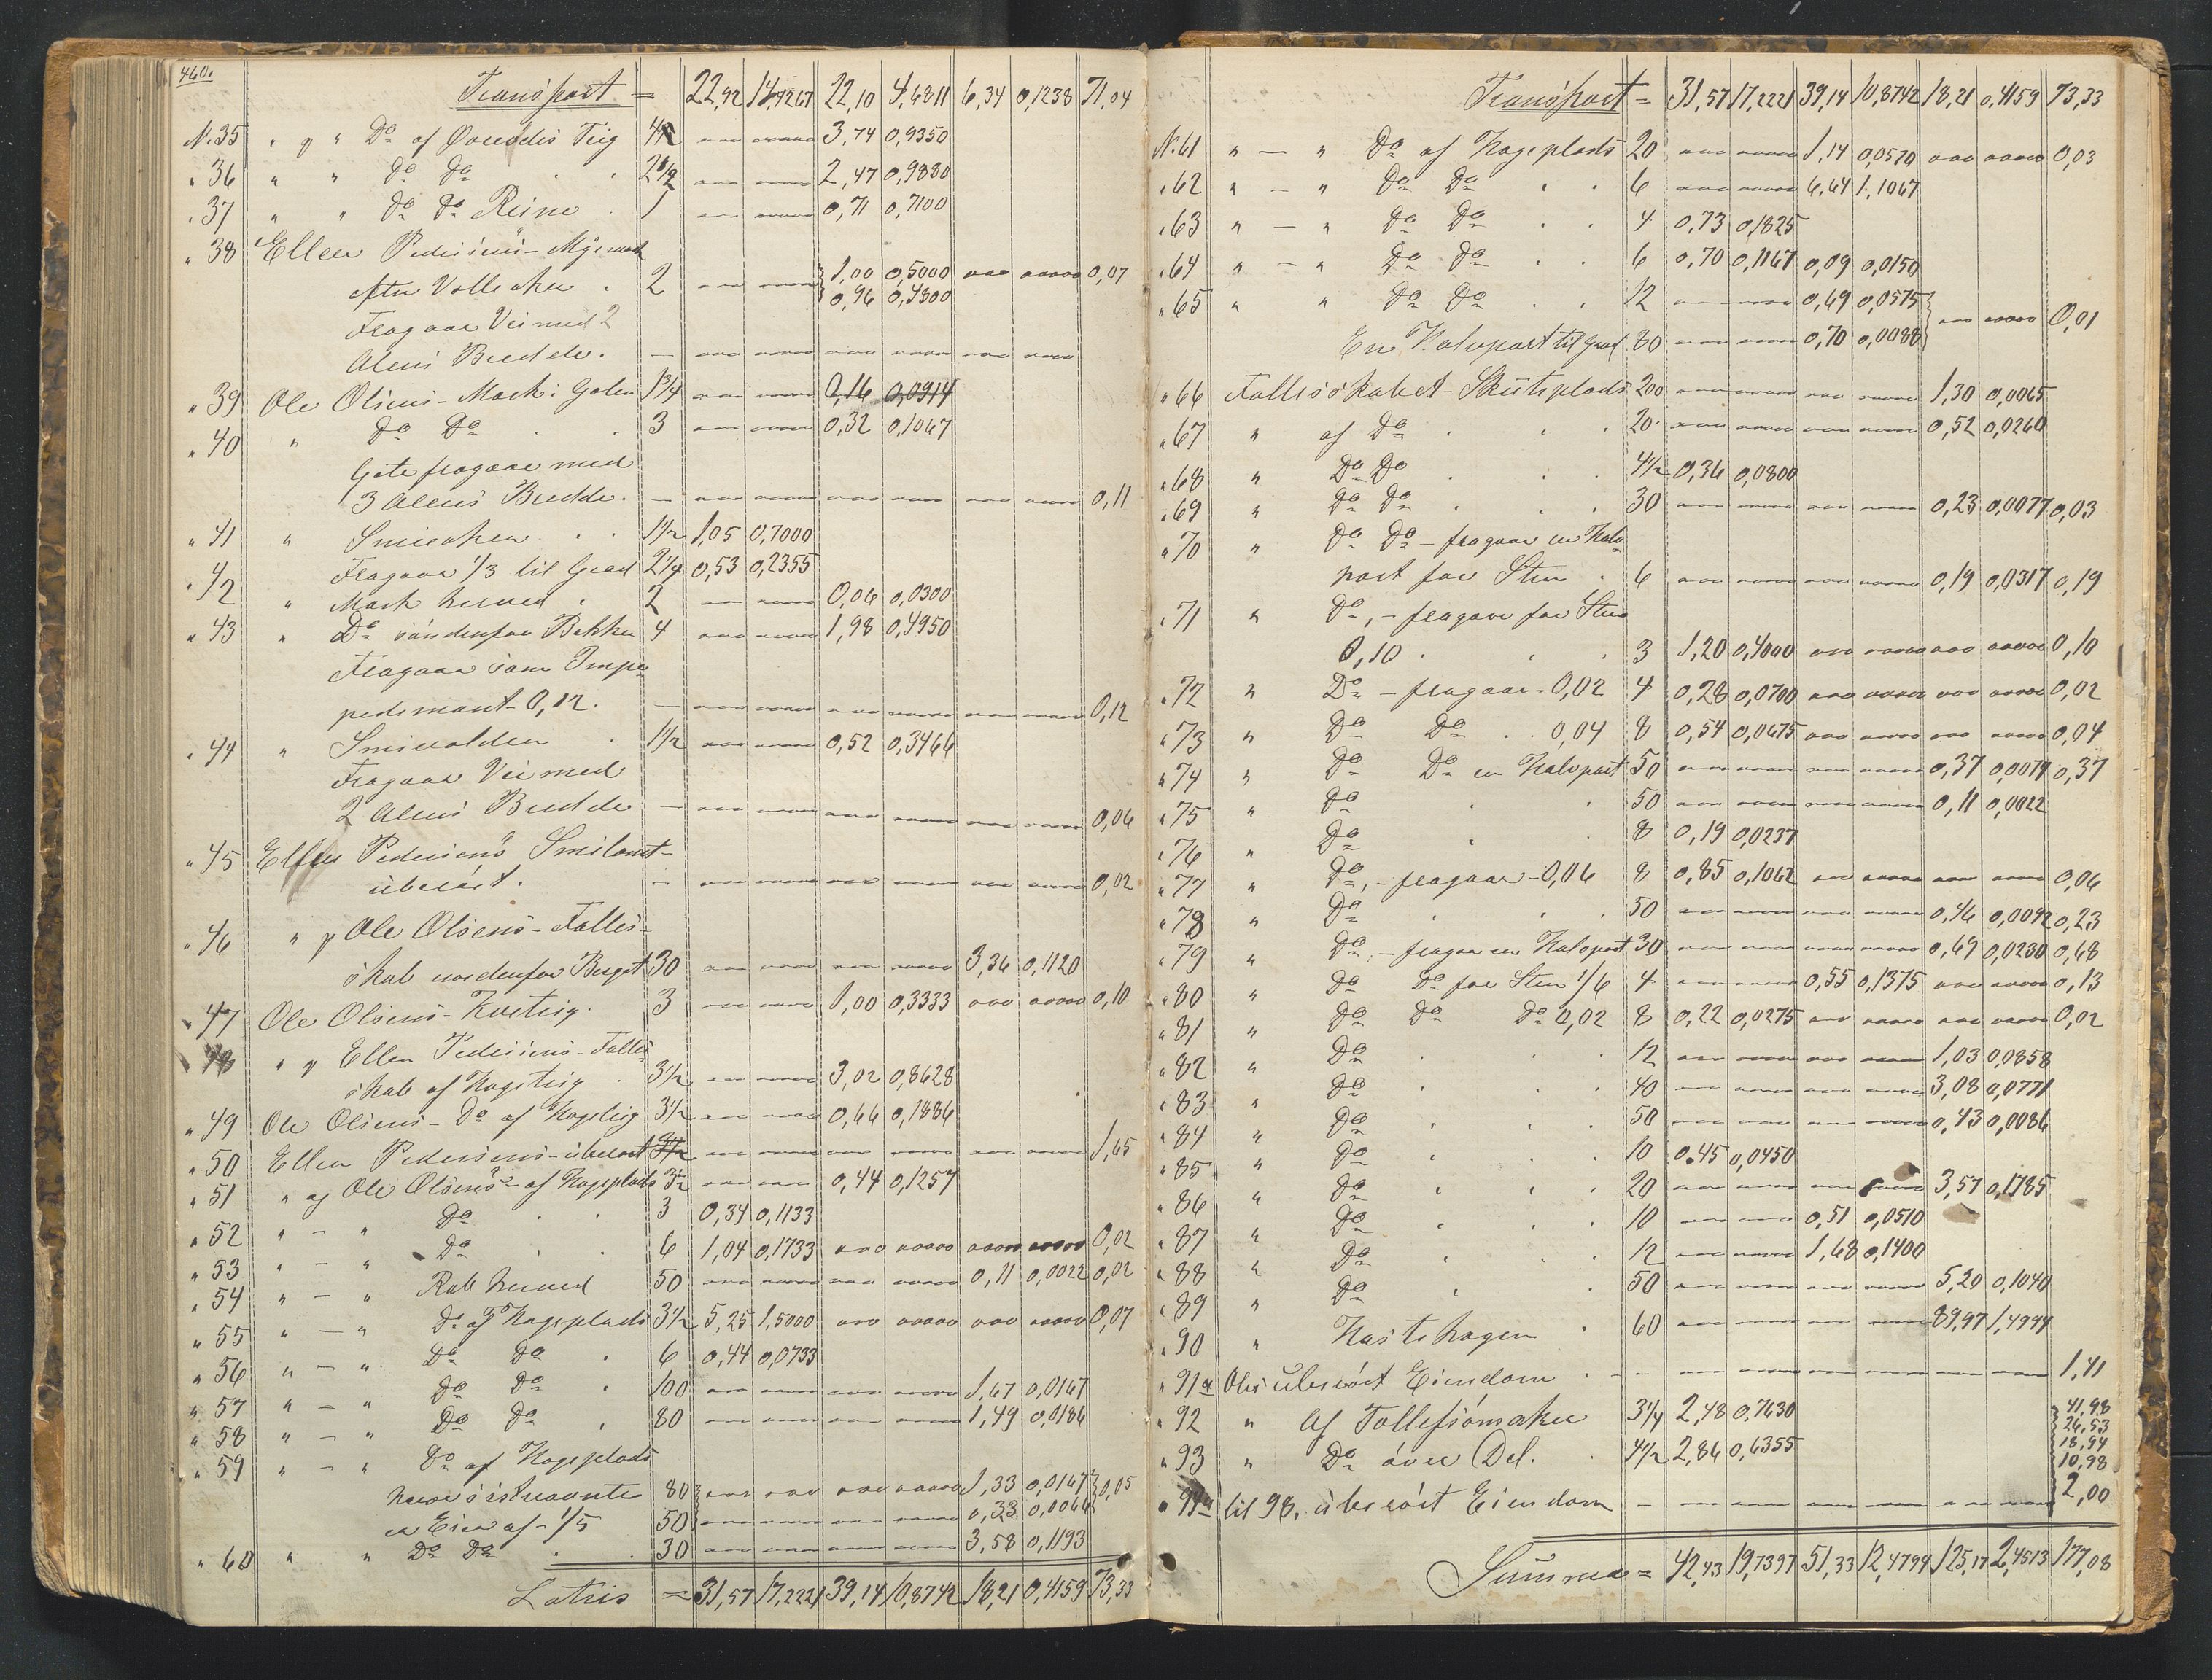 460.
Transport = 22,92 14,4267 22,10 4,6811 6,34 0,1238 71,04
N. 35 " " Do af Teig 4 3,74 0,9350
" 36 " " Do Do 2 1/2 2,47 0,9880
" 37 " " Do Do Reine 1 0,71 0,7100
" 38 Ellen Pedersens -
efter Volleaker 2 1,00 0,5000 0,07
0,96 0,4800
Fragaar Vei med 2
Alens Bredde. -
" 39 Ole Olsens - Mark i 1 3/4 0,16 0,0914
" 40 " Do Do 3 0,32 0,1067
Gote fragaar med
3 Alens Bredde. - 0,11
" 41 " Smieaker 1 1/2 1,05 0,7000
Fragaar 1/3 til Grad 2 1/4 0,53 0,2355
" 42 " Mark herved 2 0,06 0,0300
" 43 " Do söndenfor Bekken 4 1,98 0,4950
Fragaar som Impe-
pediment 0,12. - 0,12
" 44 " Smievolden 1 1/2 0,52 0,3466
Fragaar Vei med
2 Alens Bredde - 0,06
" 45 Ellen Pedersens Smitomt -
übesáet. - 0,02
" 46 " og Ole Olsens - Fælles-
skab nordenfor Berget 30 3,36 0,1120
" 47 Ole Olsens - 3 1,00 0,3333 0,10
" 48 " og Ellen Pedersens - Fælles
skab af Hageteig 3 1/2 3,02 0,8628
" 49 Ole Olsens - Do af Hageteig 3 1/2 0,66 0,1886
" 50 Ellen Pedersens - 1,65
" 51 " og Ole Olsens - af Hageplads 3 1/2 0,44 0,1257
" 52 " - " Do 3 0,34 0,1133
" 53 " - " Do 6 1,04 0,1733 0,02
" 54 " - " herved 50 0,11 0,0022 0,02
" 55 " - " Do af Hageplads 3 1/2 5,25 1,5000 0,07
" 56 " - " Do Do 6 0,44 0,0733
" 57 " - " Do Do 100 1,67 0,0167
" 58 " - " Do Do 80 1,49 0,0186
" 59 " - " Do af Hageplads
80 1,33 0,0167 0,05
er Eier af - 1/5 50 0,33 0,0066
" 60 " " Do Do 30 3,58 0,1193
Latris = 31,57 17,2221 39,14 10,8742 18,21 0,4159 73,33
Transport = 31,57 17,2221 39,14 10,8742 18,21 0,4159 73,33
N. 61 " - " Do af Hageplads 20 1,14 0,0570 0,03
" 62 " - " Do Do 6 6,64 1,1067
" 63 " - " Do Do 4 0,73 0,1825
" 64 " - " Do Do 6 0,70 0,1167 0,09 0,0150
" 65 " " Do Do 12 0,69 0,0575
En Halvpart til Grad 80 0,70 0,0088 0,01
" 66 Fællesskabet - 200 1,30 0,0065
" 67 " af Do 20 0,52 0,0260
" 68 " Do Do 4 1/2 0,36 0,0800
" 69 " Do Do 30 0,23 0,0077 0,03
" 70 " Do Do - fragaar en Halv-
part for Sten 6 0,19 0,0317 0,19
" 71 " Do, - fragaar for Sten
0,10 3 1,20 0,4000 0,10
" 72 " Do - fragaar - 0,02 4 0,28 0,0700 0,02
" 73 " Do Do 0,04 8 0,54 0,0675 0,04
" 74 " Do Do en Halvpart 50 0,37 0,0074 0,37
" 75 " Do 50 0,11 0,0022
" 76 " Do 8 0,19 0,0237
" 77 " Do, - fragaar - 0,06 8 0,85 0,1062 0,06
" 78 " Do 50 0,46 0,0092 0,23
" 79 " Do, - fragaar en Halvpart 30 0,69 0,0230 0,68
" 80 " Do Do for Sten 1/6 4 0,55 0,1375 0,13
" 81 " Do Do Do 0,02 8 0,22 0,0275 0,02
" 82 " Do 12 1,03 0,0858
" 83 " Do 40 3,08 0,0771
" 84 " Do 50 0,43 0,0086
" 85 " Do 10 0,45 0,0450
" 86 " Do 20 3,57 0,1785
" 87 " Do 10 0,51 0,0510
" 88 " Do 12 1,68 0,1400
" 89 " Do 50 5,20 0,1040
" 90 " Hastehagen 60 89,97 1,4994
" 91 a Eiendom - 1,41
" 92 " Af Tollefsömaker 3 1/4 2,48 0,7630 41,98
26,53
18,94
" 93 " Do över Del. 4 1/2 2,86 0,6355 10,98
" 94 a til 98. Eiendom - 2,00
Summa = 42,43 19,7397 51,33 12,4794 125,17 2,4513 177,08